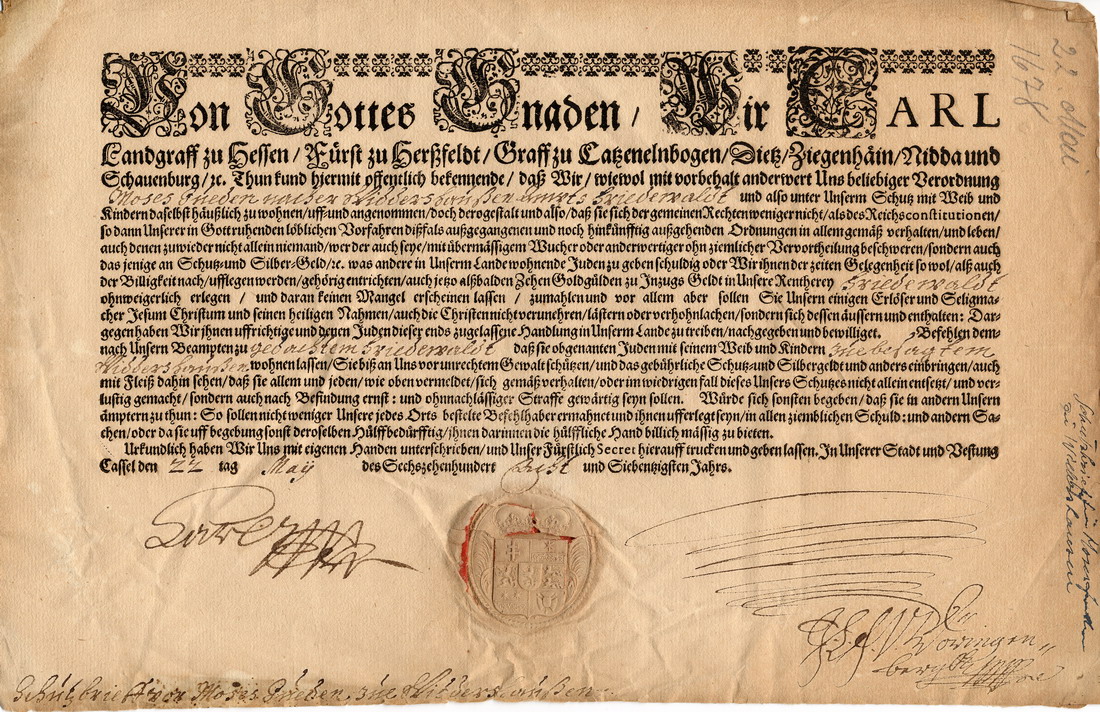 Von Gottes Gnaden / Wir CARL
Landgraff zu Hessen / Fürst zu Herßfeldt / Graff zu Catzenelnbogen / Dietz / Ziegenhäin / Nidda und
Schauenburg / ꝛc. Thun kund hiermit offentlich bekennende / daß Wir / wiewol mit vorbehalt anderwert Uns beliebiger Verordnung
Moses Jueden Widdershaußen ambts Friedewaldt und also unter Unserm Schutz mit Weib und
Kindern daselbst häußlich zu wohnen / uff- und angenommen / doch derogestalt und also / daß sie sich der gemeinen Rechten weniger nicht / als des Reichs constitutionen /
so dann Unserer in Gott ruhenden löblichen Vorfahren dißfals außgegangenen und noch hinkünfftig außgehenden Ordnungen in allem gemäß verhalten / und leben /
auch denen zuwieder nicht allein niemand / wer der auch seye / mit übermässigem Wucher oder anderwertiger ohnziemlicher Vervortheilung beschweren / sondern auch
das jenige an Schutz- und Silber-Geld / ꝛc. was andere in Unserm Lande wohnende Juden zu geben schuldig oder Wir ihnen der zeiten Gelegenheit so wol / alß auch
der Billigkeit nach / ufflegen werden / gehörig entrichten / auch jetzo alßbalden Zehen Goldgülden zu Inzugs Geldt in Unsere Rentherey Friedewaldt
ohnweigerlich erlegen / und daran keinen Mangel erscheinen lassen / zumahlen und vor allem aber sollen Sie Unsern einigen Erlöser und Seligma-
cher Jesum Christum und seinen heiligen Nahmen / auch die Christen nicht verunehren / lästern oder verhohnlachen / sondern sich dessen äussern und enthalten: Dar-
gegen haben Wir ihnen uffrichtige und denen Juden dieser ends zugelassene Handlung in Unserm Lande zu treiben / nachgegeben und bewilliget. Befehlen dem-
nach Unsern Beampten zu gedachtem Friedewaldt daß sie obgenanten Juden mit seinem Weib und Kindern zue besagtem
Widdershaußen wohnen lassen / Sie biß an Uns vor unrechtem Gewalt schützen / und das gebührliche Schutz- und Silbergeld und anders einbringen / auch
mit Fleiß dahin sehen / daß sie allem und jeden / wie oben vermeldet / sich gemäß verhalten / oder im wiedrigen fall dieses Unsers Schutzes nicht allein entsetzt / und ver-
lustig gemacht / sondern auch nach Befindung ernst: und ohnnachlässiger Straffe gewärtig seyn sollen. Würde sich sonsten begeben / daß sie in andern Unsern
ämptern zu thun: So sollen nicht weniger Unsere jedes Orts bestelte Befehlhaber ermahnet und ihnen ufferlegt seyn / in allen ziemblichen Schuld: und andern Sa-
chen / oder da sie uff begebung sonst deroselben Hülff bedürfftig / jhnen darinnen die hülffliche Hand billich mässig zu bieten.
Urkundlich haben Wir Uns mit eigenen Handen unterschrieben / und Unser Fürstlich Secret hierauff trucken und geben lassen. In Unserer Stadt und Vestung
Cassel den 22 tag May des Sechszehenhundert Acht und Siebentzigsten Jahrs.
Carl
Schutzbrieff vor Moses Jueden, zue Widdershaußen
22. Mai
1678
Schutzbrief für Moses Juden
zu Widdershausen